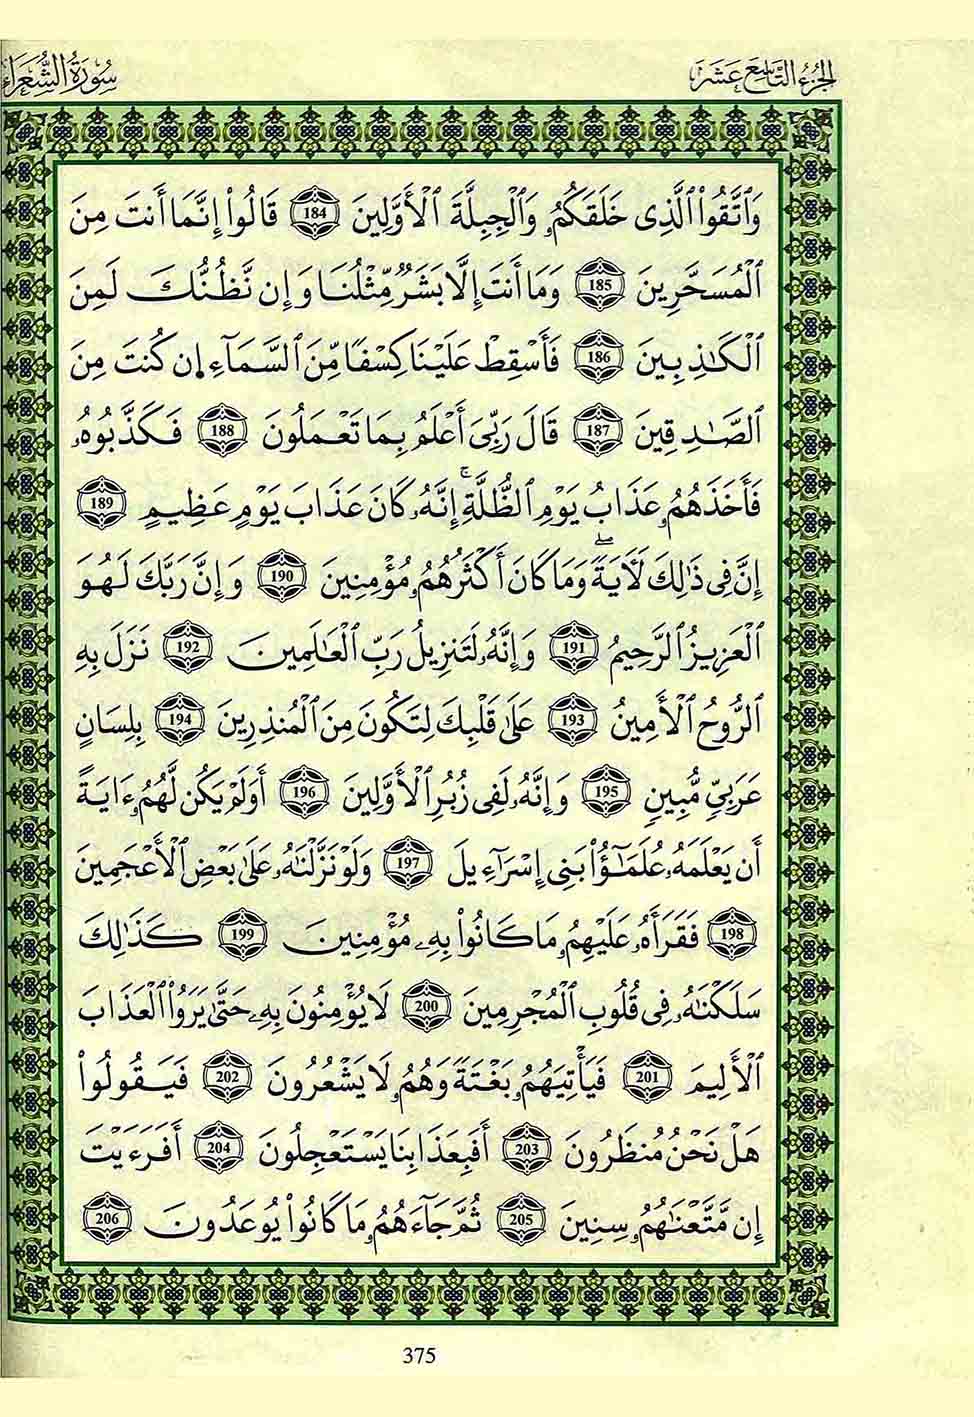 الجُزءُ التَّاسِعَ عَشَرَ
سُورَةُ الشُّعَرَاء
وَٱتَّقُواْ ٱلَّذِى خَلَقَكُمُۥ وَٱلْجِبِلَّةَ ٱلْأَوَّلِينَ 184 قَالُواْ إِنَّمَا أَنتَ مِنَ
ٱلْمُسَحَّرِينَ 185 وَمَا أَنتَ إِلَّا بَشَرٌ مِّثْلُنَا وَإِن نَّظُنُّكَ لَمِنَ
ٱلْكَٰذِبِينَ 186 فَأَسْقِطْ عَلَيْنَا كِسْفًا مِّنَ ٱلسَّمَآءِ اِن كُنتَ مِنَ
ٱلصَّٰدِقِينَ 187 قَالَ رَبِّىَ أَعْلَمُ بِمَا تَعْمَلُونَ 188 فَكَذَّبُوهُۥ
فَأَخَذَهُمُۥ عَذَابُ يَوْمِ ٱلظُّلَّةِۚ إِنَّهُۥ كَانَ عَذَابَ يَوْمٍ عَظِيمٍ 189
إِنَّ فِى ذَٰلِكَ لَأٓيَةًۖ وَمَا كَانَ أَكْثَرُهُمُۥ مُؤْمِنِينَ 190 وَإِنَّ رَبَّكَ لَهُوَ
ٱلْعَزِيزُ ٱلرَّحِيمُ 191 وَإِنَّهُۥ لَتَنزِيلُ رَبِّ ٱلْعَٰلَمِينَ 192 نَزَلَ بِهِ
ٱلرُّوحُ ٱلْأَمِينُ 193 عَلَىٰ قَلْبِكَ لِتَكُونَ مِنَ ٱلْمُنذِرِينَ 194 بِلِسَانٍ
عَرَبِىٍّ مُّبِينٍ 195 وَإِنَّهُۥ لَفِى زُبُرِ ٱلْأَوَّلِينَ 196 أَوَلَمْ يَكُن لَّهُمُۥ ءَايَةً
أَن يَعْلَمَهُۥ عُلَمَٰٓؤُاْ بَنِى إِسْرَآءِيلَ 197 وَلَوْ نَزَّلْنَٰهُۥ عَلَىٰ بَعْضِ ٱلْأَعْجَمِينَ
198 فَقَرَأَهُۥ عَلَيْهِمُۥ مَا كَانُواْ بِهِۦ مُؤْمِنِينَ 199 كَذَٰلِكَ
سَلَكْنَٰهُۥ فِى قُلُوبِ ٱلْمُجْرِمِينَ 200 لَا يُؤْمِنُونَ بِهِۦ حَتَّىٰ يَرَوُاْ ٱلْعَذَابَ
ٱلْأَلِيمَ 201 فَيَأْتِيَهُمُۥ بَغْتَةً وَهُمُۥ لَا يَشْعُرُونَ 202 فَيَقُولُواْ
هَلْ نَحْنُ مُنظَرُونَ 203 أَفَبِعَذَابِنَا يَسْتَعْجِلُونَ 204 أَفَرَءَيْتَ
إِن مَّتَّعْنَٰهُمُۥ سِنِينَ 205 ثُمَّ جَآءَهُمُۥ مَا كَانُواْ يُوعَدُونَ 206
375